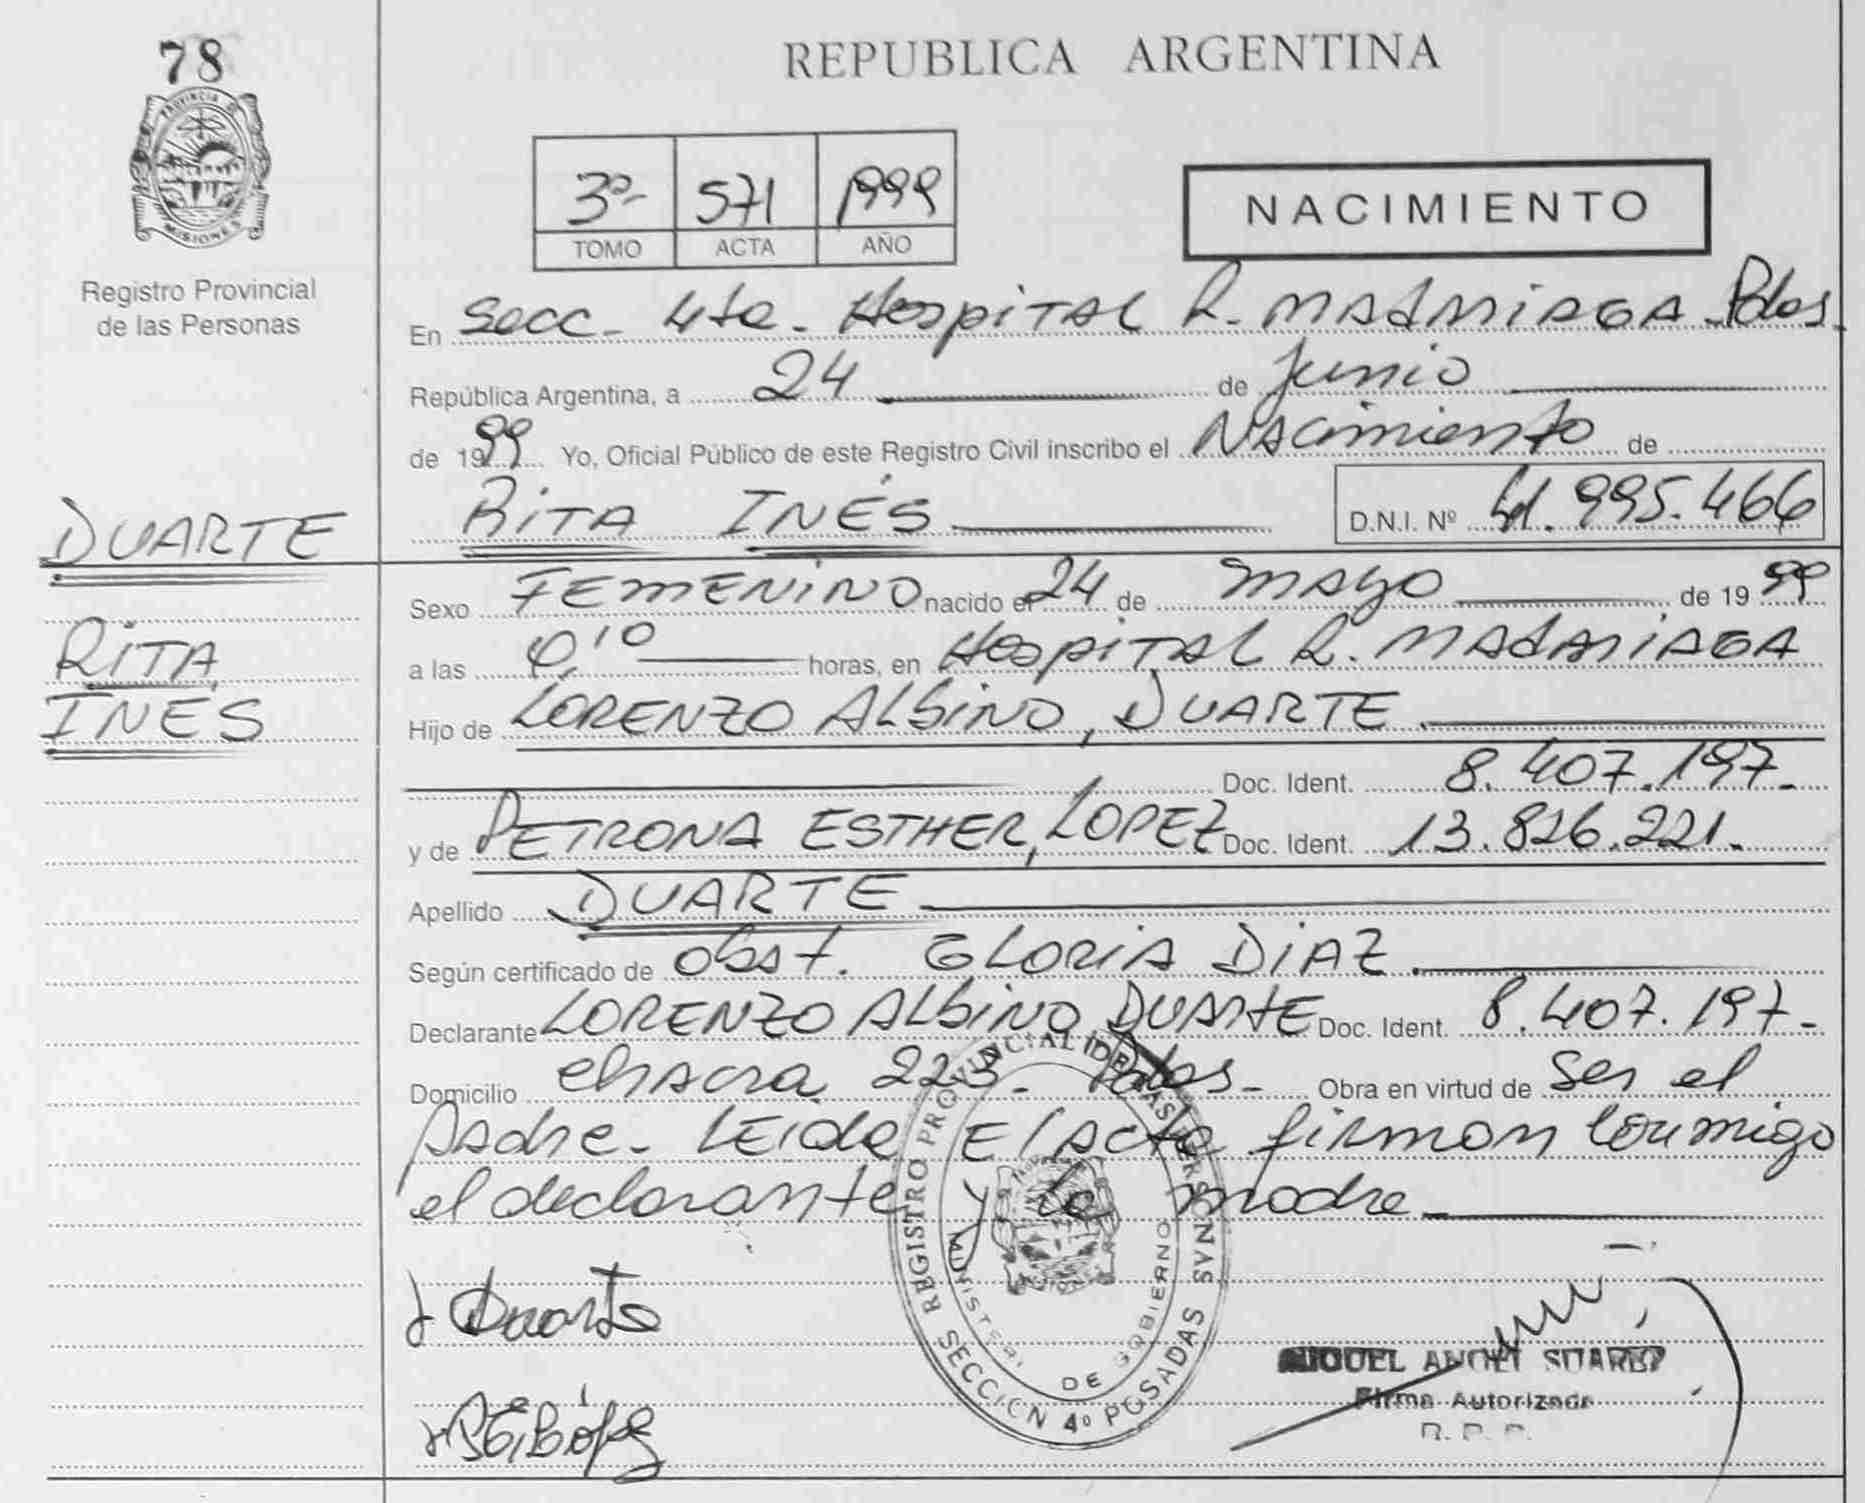 78
PROVINCIA DE
MISIONES
Registro Provincial
de las Personas
REPUBLICA ARGENTINA
3º- 571 1999
TOMO ACTA AÑO
NACIMIENTO
En Secc- 4ta- Hospital R. MADARIAGA-Pdas-
República Argentina, a 24 de Junio
de 1999 Yo, Oficial Público de este Registro Civil inscribo el Nacimiento de
RITA INÉS D.N.I. Nº 41.995.466
DUARTE
RITA
INÉS
Sexo FEMENINO nacido el 24 de mayo de 1999
a las 0,10 horas, en Hospital R. MADARIAGA
Hijo de LORENZO ALBINO, DUARTE
Doc. Ident. 8.407.197.-
y de PETRONA ESTHER, LOPEZ Doc. Ident. 13.826.221.-
Apellido DUARTE
Según certificado de obst. GLORIA DIAZ.
Declarante LORENZO ALBINO DUARTE Doc. Ident. 8.407.197.-
Domicilio chacra 223- Pdas- Obra en virtud de ser el
padre- LEida El Acta firman conmigo
el declarante y la madre-
Duarte
REGISTRO PROVINCIAL DE LAS PERSONAS
SECCION 4º POSADAS
MINISTERI DE GOBIERNO
MIGUEL ANGEL SUAREZ
Firma Autorizada
R. P. P.